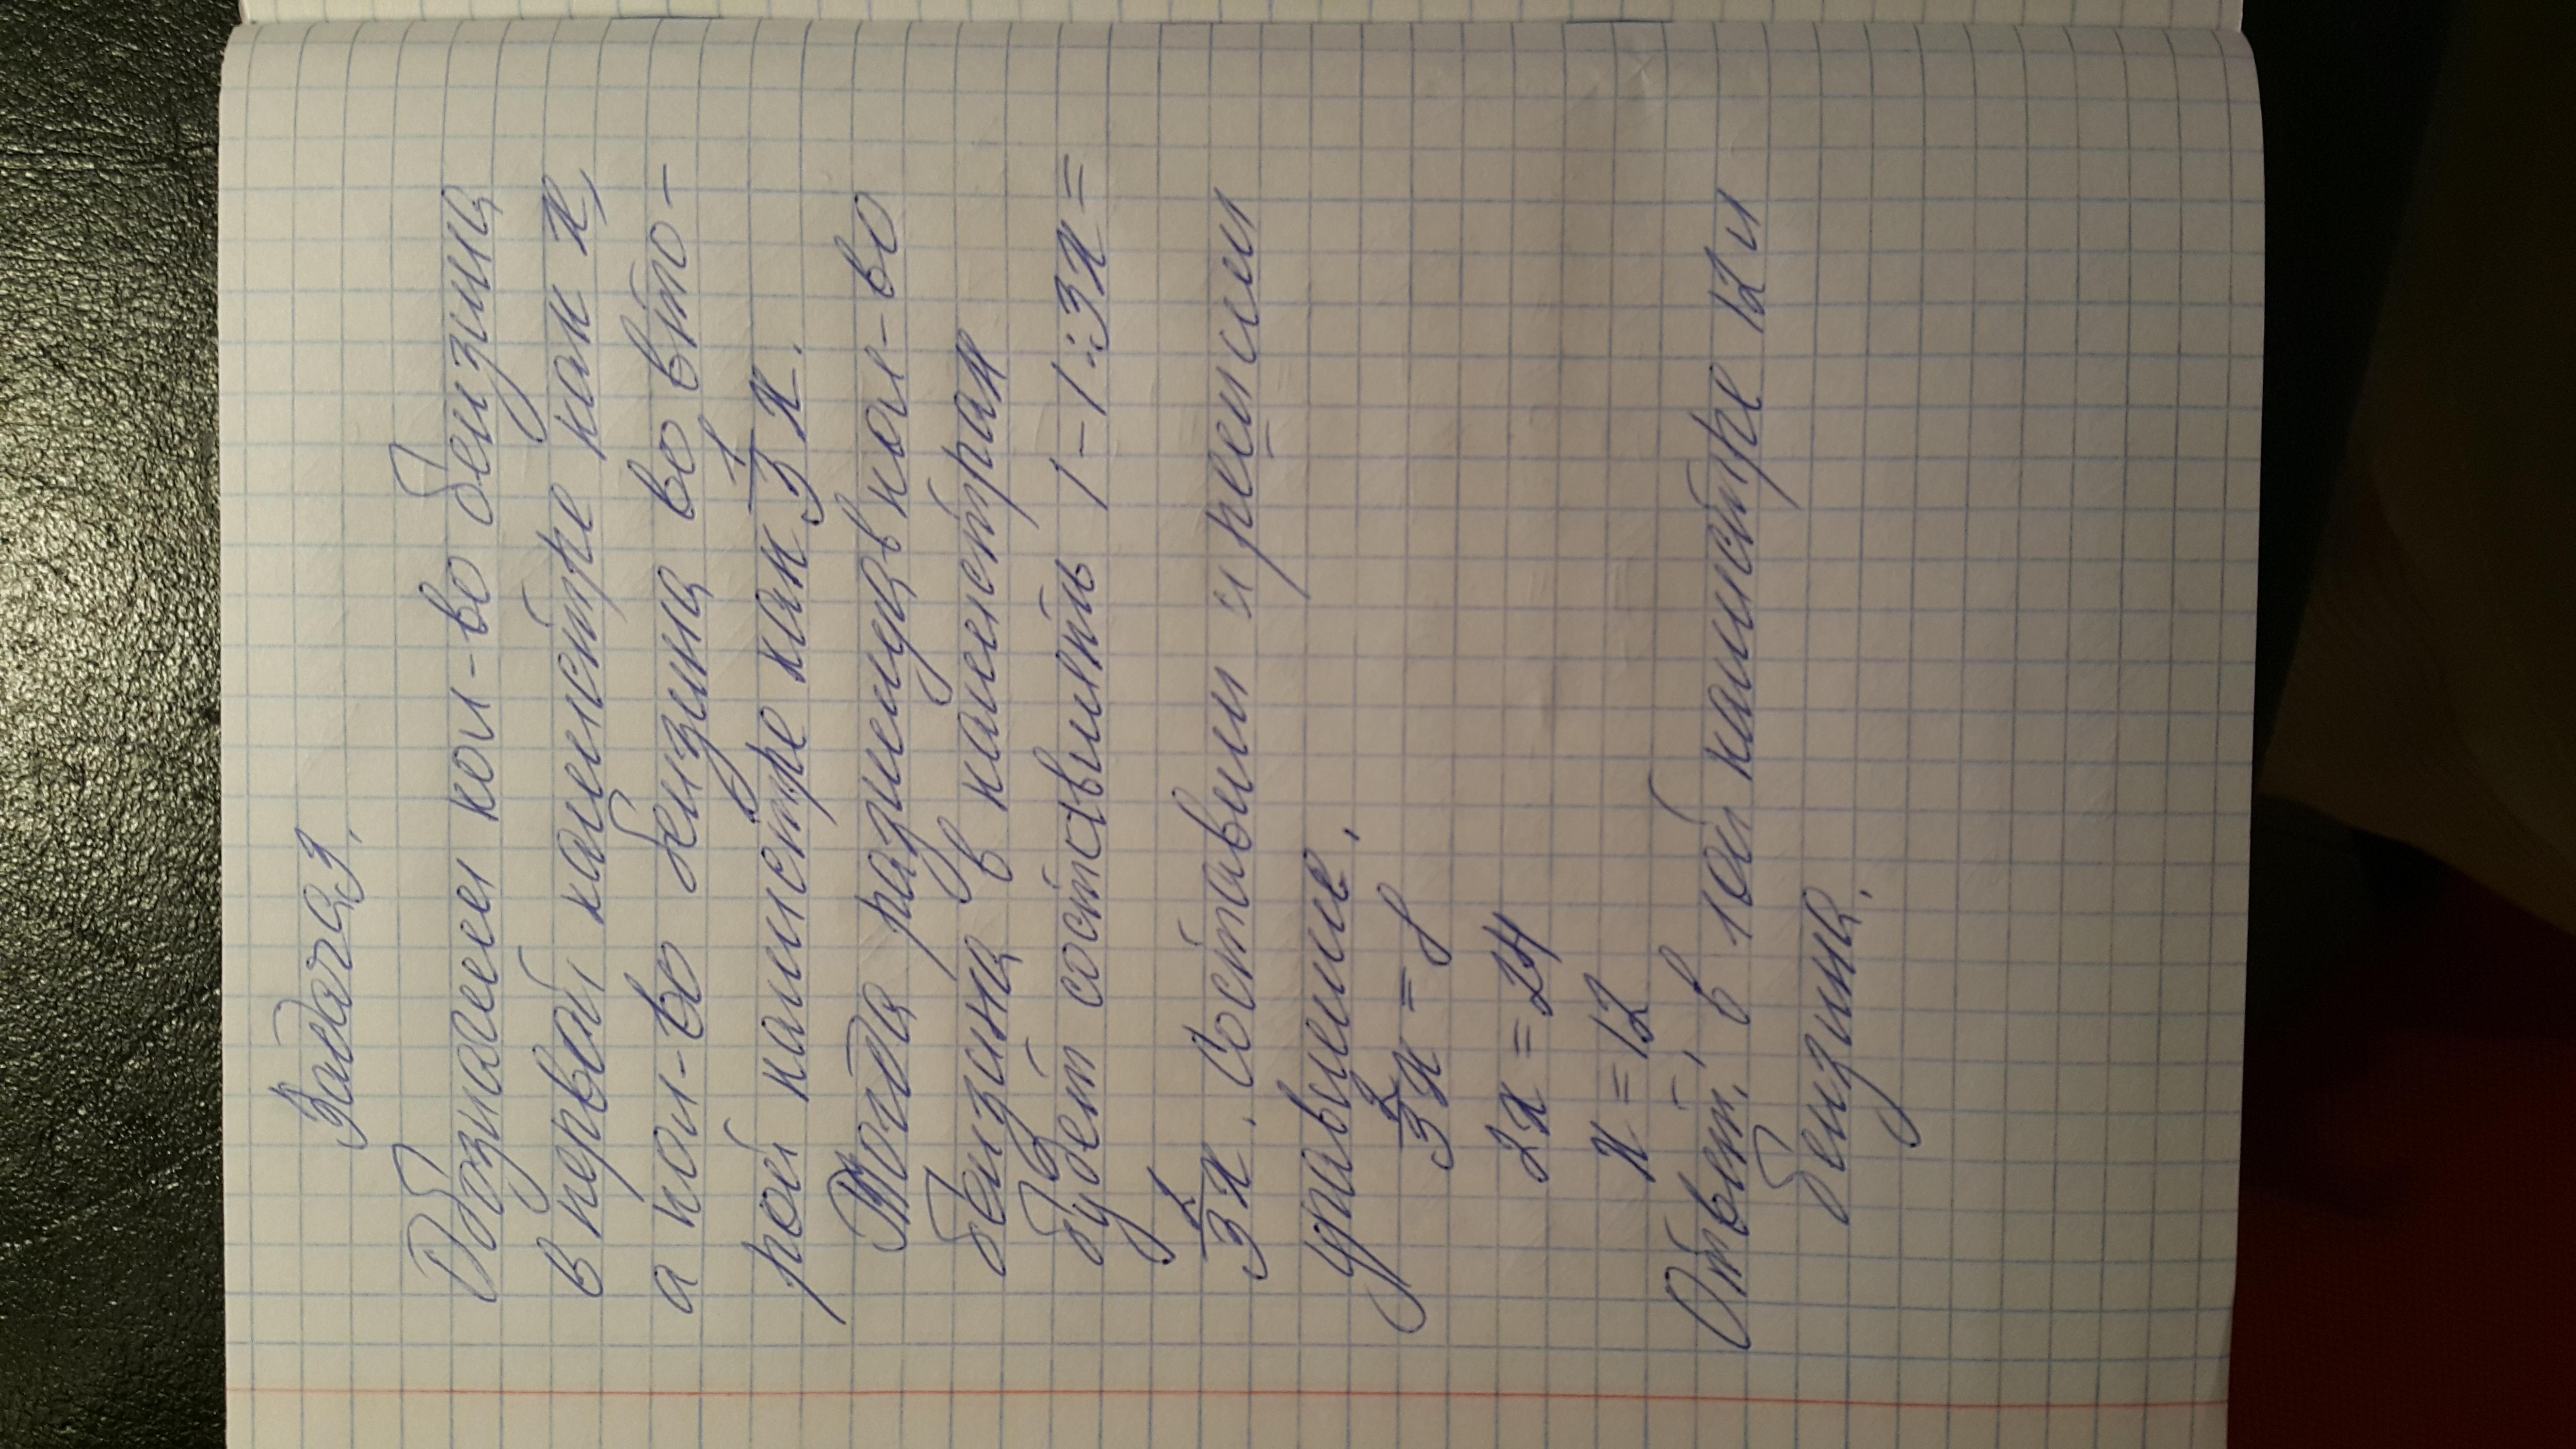 Задача 3.
Обозначем кол-во бензина
в первой канистре как x,
а кол-во бензина во вто-
рой канистре как 1/3 x.
Тогда разница в кол-во
бензина в канистрах
будет составлять 1-1:3x=
2/3 x. Составим и решим
уравнение.
2/3 x = 8
2x = 24
x = 12
Ответ: в 1ой канистре 12 л
бензина.